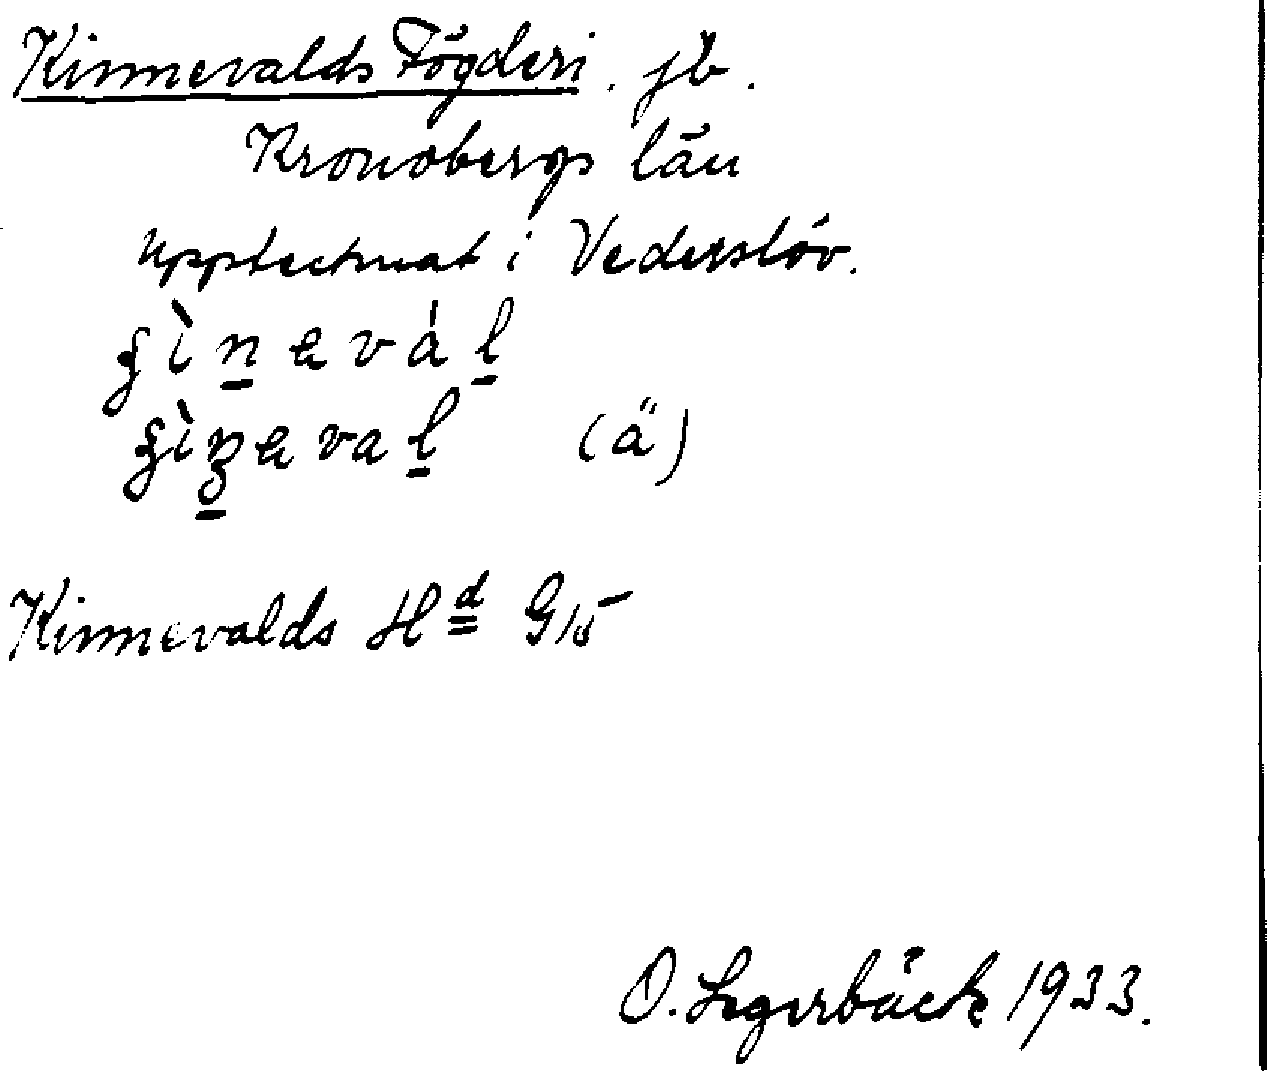 Kinnevalds Fögderi. jb.
Kronobergs län
Upptecknat i Vederslöv.
(ä)
Kinnevalds Hd G15
O. Segerbäck 1933.